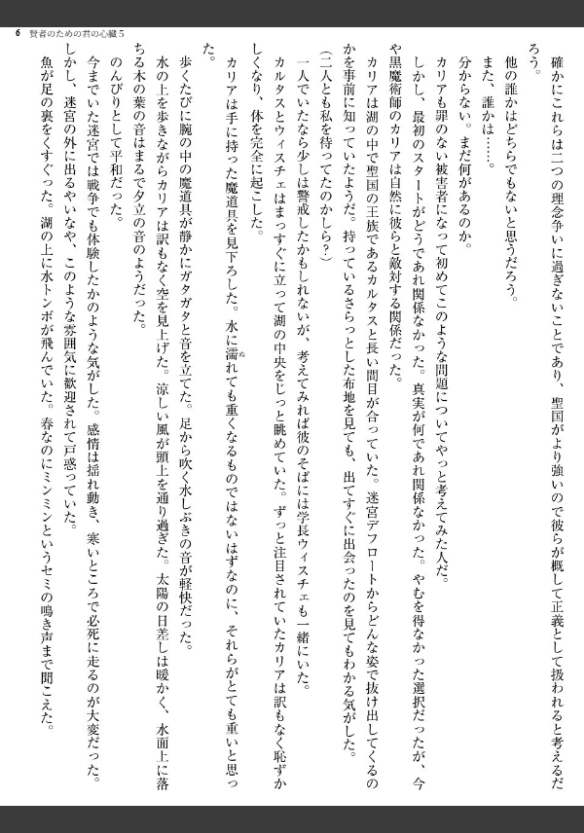 6 賢者のための君の心臓 5
確かにこれらは二つの理念争いに過ぎないことであり、聖国がより強いので彼らが概して正義として扱われると考えるだ
ろう。
他の誰かはどちらでもないと思うだろう。
また、誰かは……。
分からない。まだ何があるのか。
カリアも罪のない被害者になって初めてこのような問題についてやっと考えてみた人だ。
しかし、最初のスタートがどうであれ関係なかった。真実が何であれ関係なかった。やむを得なかった選択だったが、今
や黒魔術師のカリアは自然に彼らと敵対する関係だった。
カリアは湖の中で聖国の王族であるカルタスと長い間目が合っていた。迷宮デフロートからどんな姿で抜け出してくるの
かを事前に知っていたようだ。持っているさらっとした布地を見ても、出てすぐに出会ったのを見てもわかる気がした。
(二人とも私を待ってたのかしら?)
一人でいたなら少しは警戒したかもしれないが、考えてみれば彼のそばには学長ウィスチェも一緒にいた。
カルタスとウィスチェはまっすぐに立って湖の中央をじっと眺めていた。ずっと注目されていたカリアは訳もなく恥ずか
しくなり、体を完全に起こした。
カリアは手に持った魔道具を見下ろした。水に濡れても重くなるものではないはずなのに、それらがとても重いと思っ
た。
歩くたびに腕の中の魔道具が静かにガタガタと音を立てた。足から吹く水しぶきの音が軽快だった。
水の上を歩きながらカリアは訳もなく空を見上げた。涼しい風が頭上を通り過ぎた。太陽の日差しは暖かく、水面上に落
ちる木の葉の音はまるで夕立の音のようだった。
のんびりとして平和だった。
今までいた迷宮では戦争でも体験したかのような気がした。感情は揺れ動き、寒いところで必死に走るのが大変だった。
しかし、迷宮の外に出るやいなや、このような雰囲気に歓迎されて戸惑っていた。
魚が足の裏をくすぐった。湖の上に水トンボが飛んでいた。春なのにミンミンというセミの鳴き声まで聞こえた。